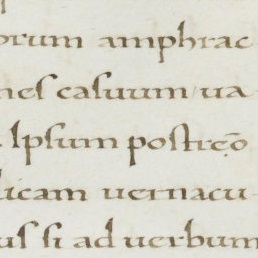 orum amphrac
nes casuum ua
Ipsum postreō
licam uernacu
us si ad uerbum